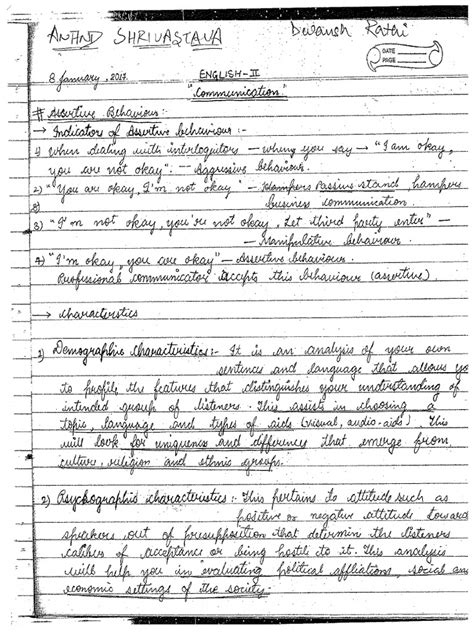 ANAND SHRIVASTAVA
Devansh Rathi
DATE
PAGE
8 January, 2017.
ENGLISH-II
"Communication"
# Assertive Behaviour:-
→ Indicator of Assertive behaviour:-
1) When dealing with interlocutors — where you say — "I am okay,
you are not okay". — Aggressive behaviour.
2) "You are okay, I'm not okay" — Hampers Passive stand, hampers
business communication.
3) "I'm not okay, you're not okay, Let third party enter" —
— Manipulative behaviour.
4) "I'm okay, you are okay" — Assertive behaviour.
Professional communicator accepts this behaviour (assertive).
→ Characteristics
1) Demographic Characteristics:- It is an analysis of your own
sentences and language that allows yo
to profile the features that distinguishes your understanding of
intended group of listeners. This assists in choosing a
topic, language and types of aids (visual, audio-aids). This
will look for uniqueness and difference that emerge from
culture, religion and ethnic groups.
2) Psychographic characteristics:- This pertains to attitude such as
positive or negative attitude toward
speakers out of presupposition that determine the listeners
calibre of acceptance or being hostile to it. This analysis
will help you in evaluating political affliations, social an
economic settings of the society.